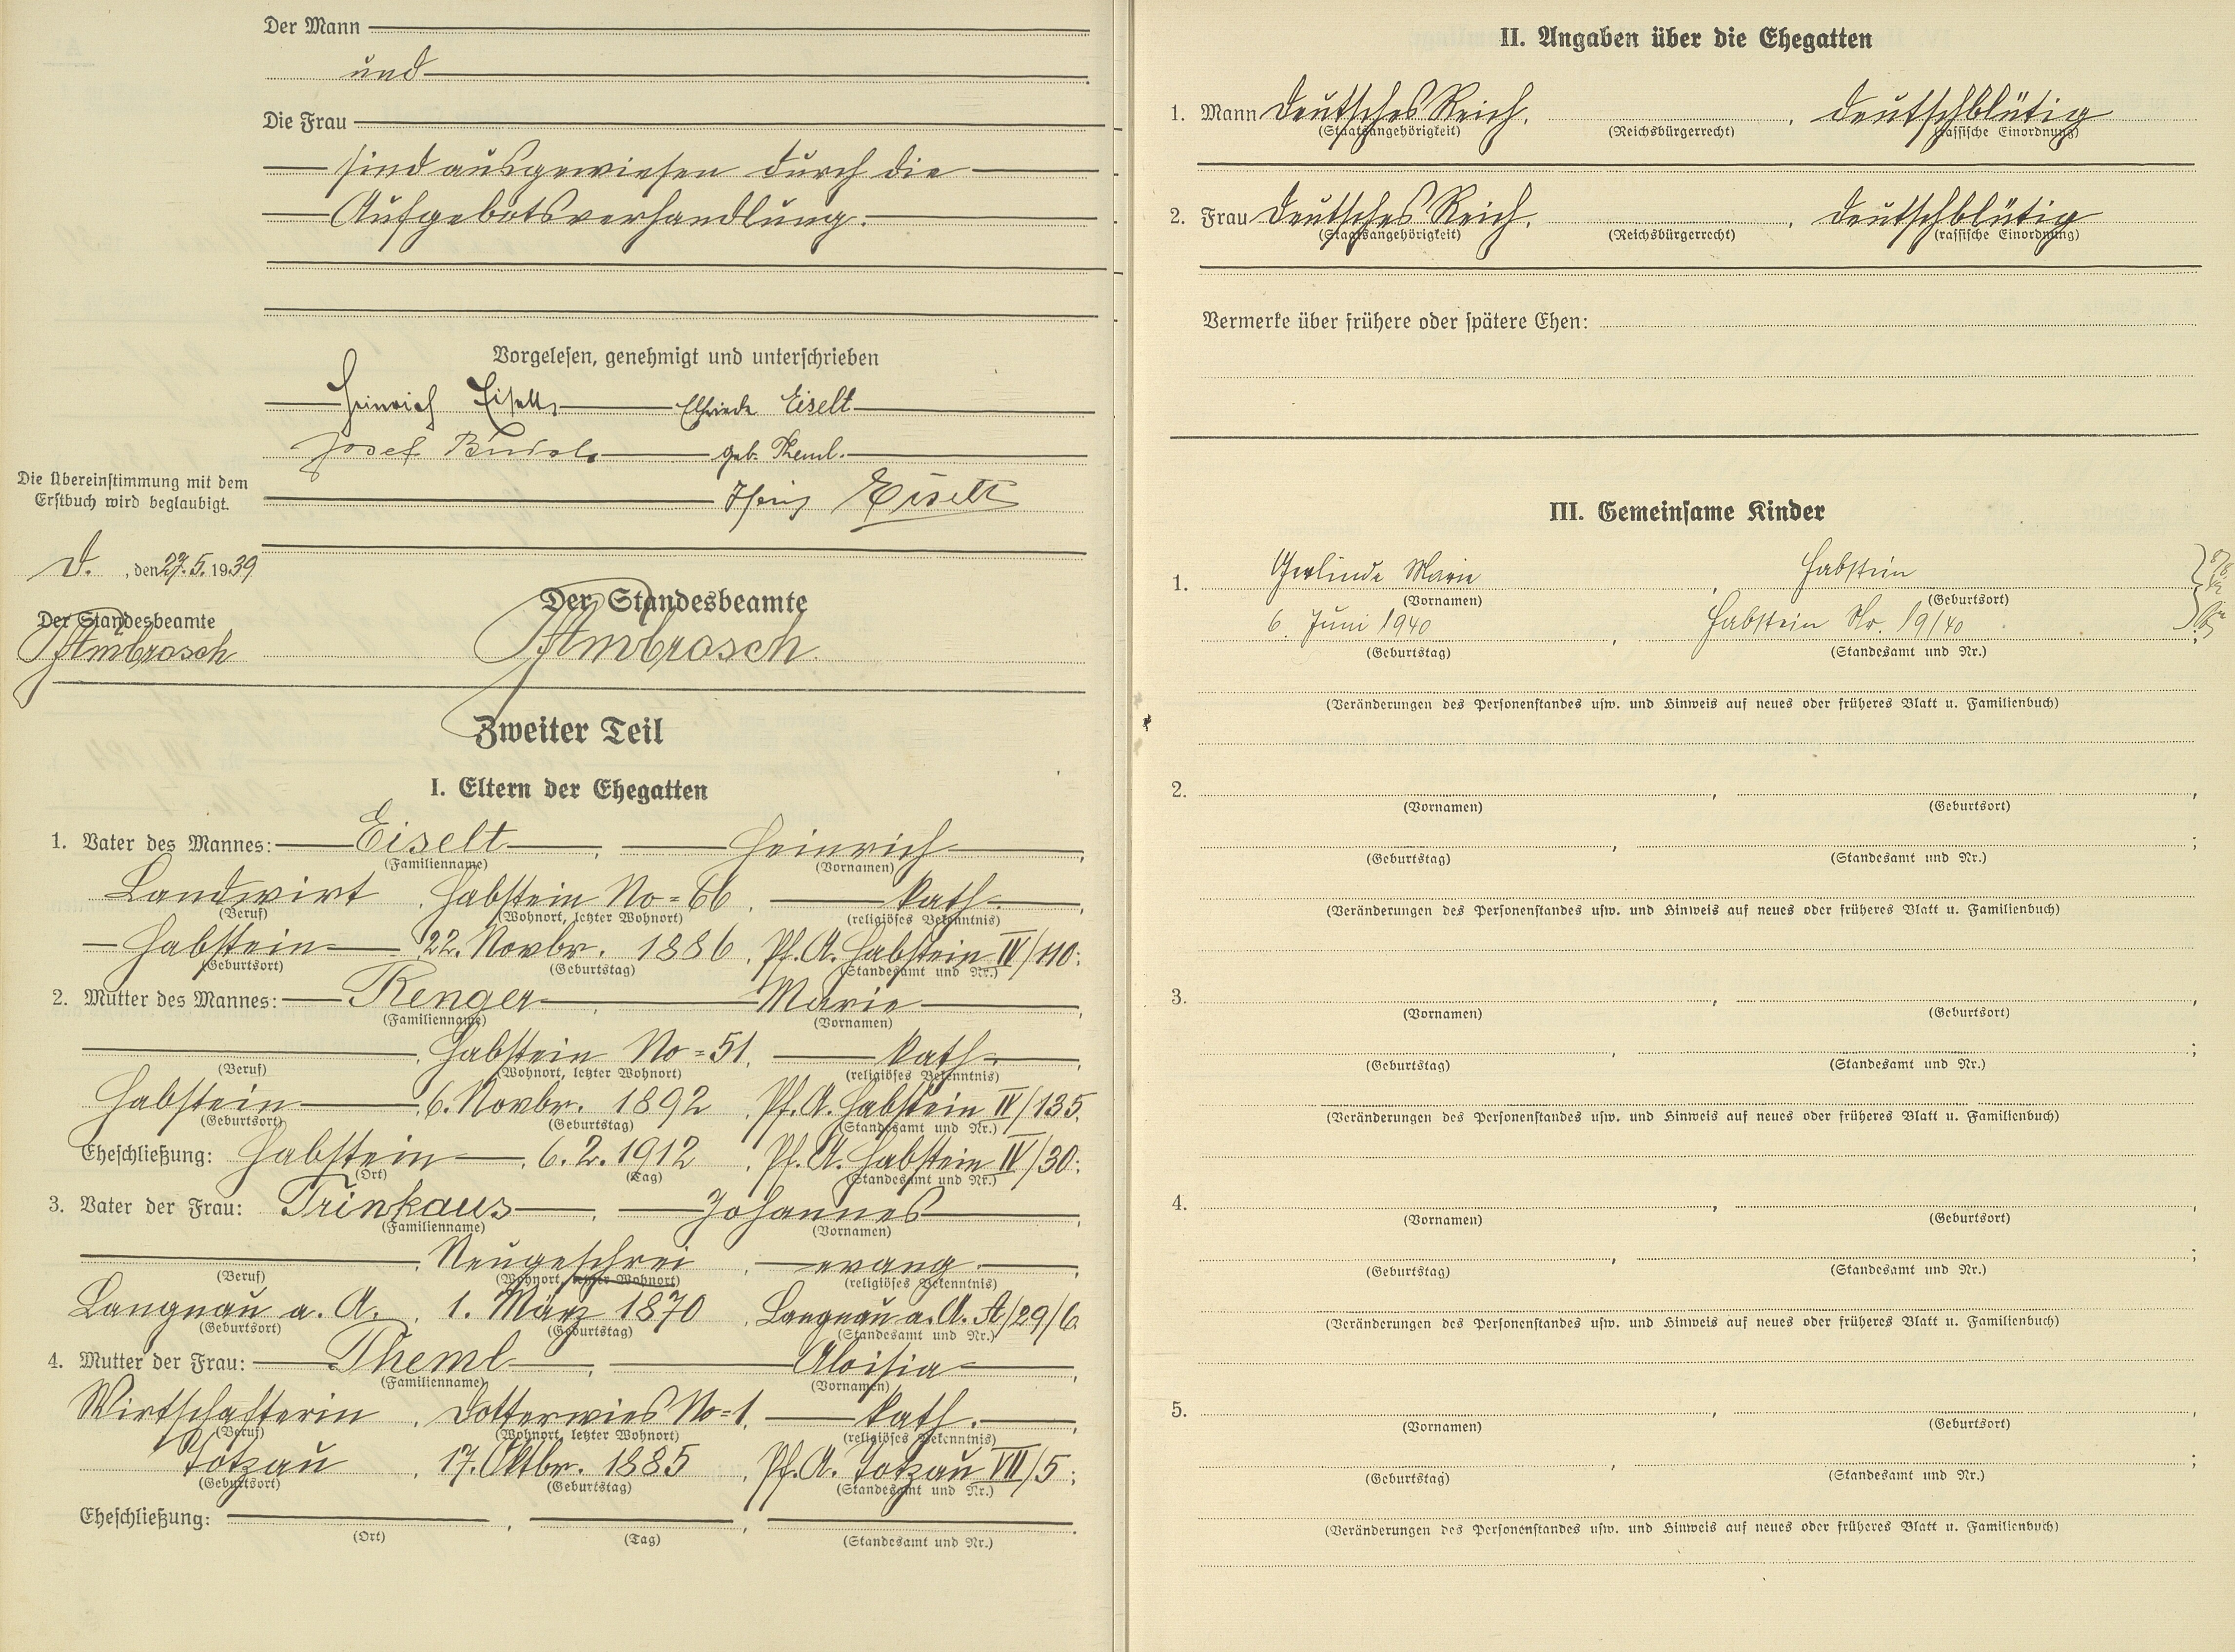 Der Mann
und
Die Frau
sind ausgewiesen durch die
Aufgebotsverhandlung.
Vorgelesen, genehmigt und unterschrieben
Heinrich Eiselt Elfriede Eiselt
Josef geb. Theml.
Eiselt
Die Übereinstimmung mit dem
Erstbuch wird beglaubigt.
D. , den 27. 5. 1939
Der Standesbeamte
Ambrosch
Der Standesbeamte
Ambrosch.
Zweiter Teil
I. Eltern der Ehegatten
1. Vater des Mannes: Eiselt, Heinrich,
(Familienname) (Vornamen)
Landwirt, Habstein No=66, kath.,
(Beruf) (Wohnort, letzter Wohnort) (religiöses Bekenntnis)
Habstein, 22. Novbr. 1886, Pf. A. Habstein IV/110;
(Geburtsort) (Geburtstag) (Standesamt und Nr.)
2. Mutter des Mannes: Renger, Marie,
(Familienname) (Vornamen)
, Habstein No=51, kath.,
(Beruf) (Wohnort, letzter Wohnort) (religiöses Bekenntnis)
Habstein, 6. Novbr. 1892, Pf. A. Habstein IV/135.
(Geburtsort) (Geburtstag) (Standesamt und Nr.)
Eheschließung: Habstein, 6. 2. 1912, Pf. A. Habstein IV/30;
(Ort) (Tag) (Standesamt und Nr.)
3. Vater der Frau: Trinkaus, Johannes,
(Familienname) (Vornamen)
, Neugeschrei, evang.,
(Beruf) (Wohnort, letzter Wohnort) (religiöses Bekenntnis)
Langnau a. A., 1. März 1870, Langnau a. A. A/29/6.
(Geburtsort) (Geburtstag) (Standesamt und Nr.)
4. Mutter der Frau: Theml, Aloisia,
(Familienname) (Vornamen)
Wirtschafterin, Dotterwies No=1, kath.,
(Beruf) (Wohnort, letzter Wohnort) (religiöses Bekenntnis)
Totzau, 17. Oktbr. 1885, Pf. A. Totzau VII/5;
(Geburtsort) (Geburtstag) (Standesamt und Nr.)
Eheschließung: , , .
(Ort) (Tag) (Standesamt und Nr.)
II. Angaben über die Ehegatten
1. Mann Deutsches Reich, , deutschblütig
(Staatsangehörigkeit) (Reichsbürgerrecht) (rassische Einordnung)
2. Frau Deutsches Reich, , deutschblütig
(Staatsangehörigkeit) (Reichsbürgerrecht) (rassische Einordnung)
Vermerke über frühere oder spätere Ehen:
III. Gemeinsame Kinder
1. Gerlinde Marie, Habstein
(Vornamen) (Geburtsort)
6. Juni 1940, Habstein Nr. 19/40
(Geburtstag) (Standesamt und Nr.)
(Veränderungen des Personenstandes usw. und Hinweis auf neues oder früheres Blatt u. Familienbuch)
2. , ,
(Vornamen) (Geburtsort)
, ;
(Geburtstag) (Standesamt und Nr.)
(Veränderungen des Personenstandes usw. und Hinweis auf neues oder früheres Blatt u. Familienbuch)
3. , ,
(Vornamen) (Geburtsort)
, ;
(Geburtstag) (Standesamt und Nr.)
(Veränderungen des Personenstandes usw. und Hinweis auf neues oder früheres Blatt u. Familienbuch)
4. , ,
(Vornamen) (Geburtsort)
, ;
(Geburtstag) (Standesamt und Nr.)
(Veränderungen des Personenstandes usw. und Hinweis auf neues oder früheres Blatt u. Familienbuch)
5. , ,
(Vornamen) (Geburtsort)
, ;
(Geburtstag) (Standesamt und Nr.)
(Veränderungen des Personenstandes usw. und Hinweis auf neues oder früheres Blatt u. Familienbuch)